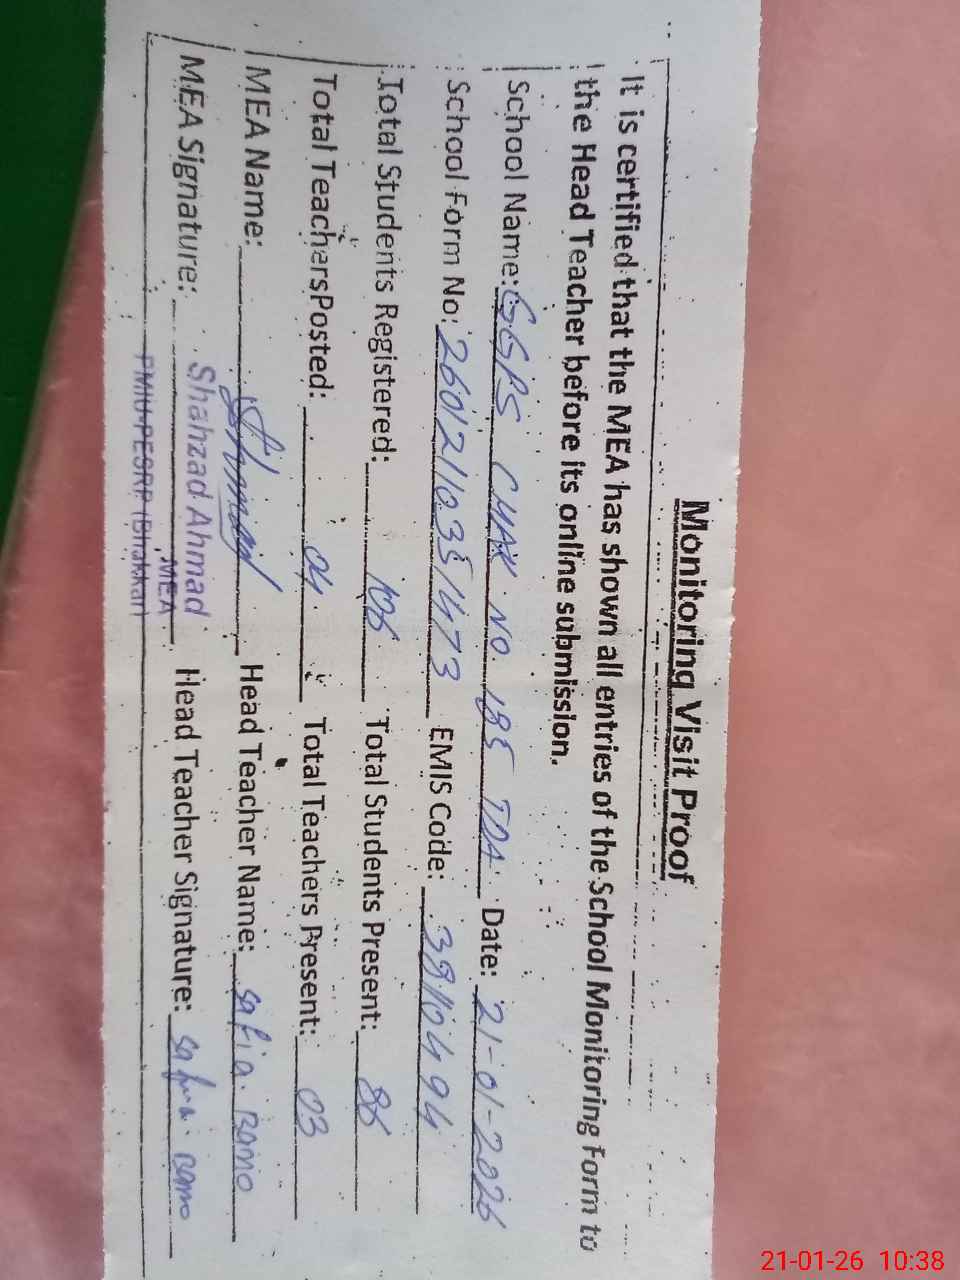 Monitoring Visit Proof
It is certified that the MEA has shown all entries of the School Monitoring Form to
the Head Teacher before its online submission.
School Name: GGPS CHAK NO 185 TDA Date: 21-01-2026
School Form No: 2601210351473 EMIS Code: 38104494
Total Students Registered: 106 Total Students Present: 86
Total Teachers Posted: 04 Total Teachers Present: 03
MEA Name: Head Teacher Name: Safia Bano
MEA Signature: Shahzad Ahmad Head Teacher Signature: Safia Bano
MEA
PMIU-PESRP (Bhakkar)
21-01-26 10:38